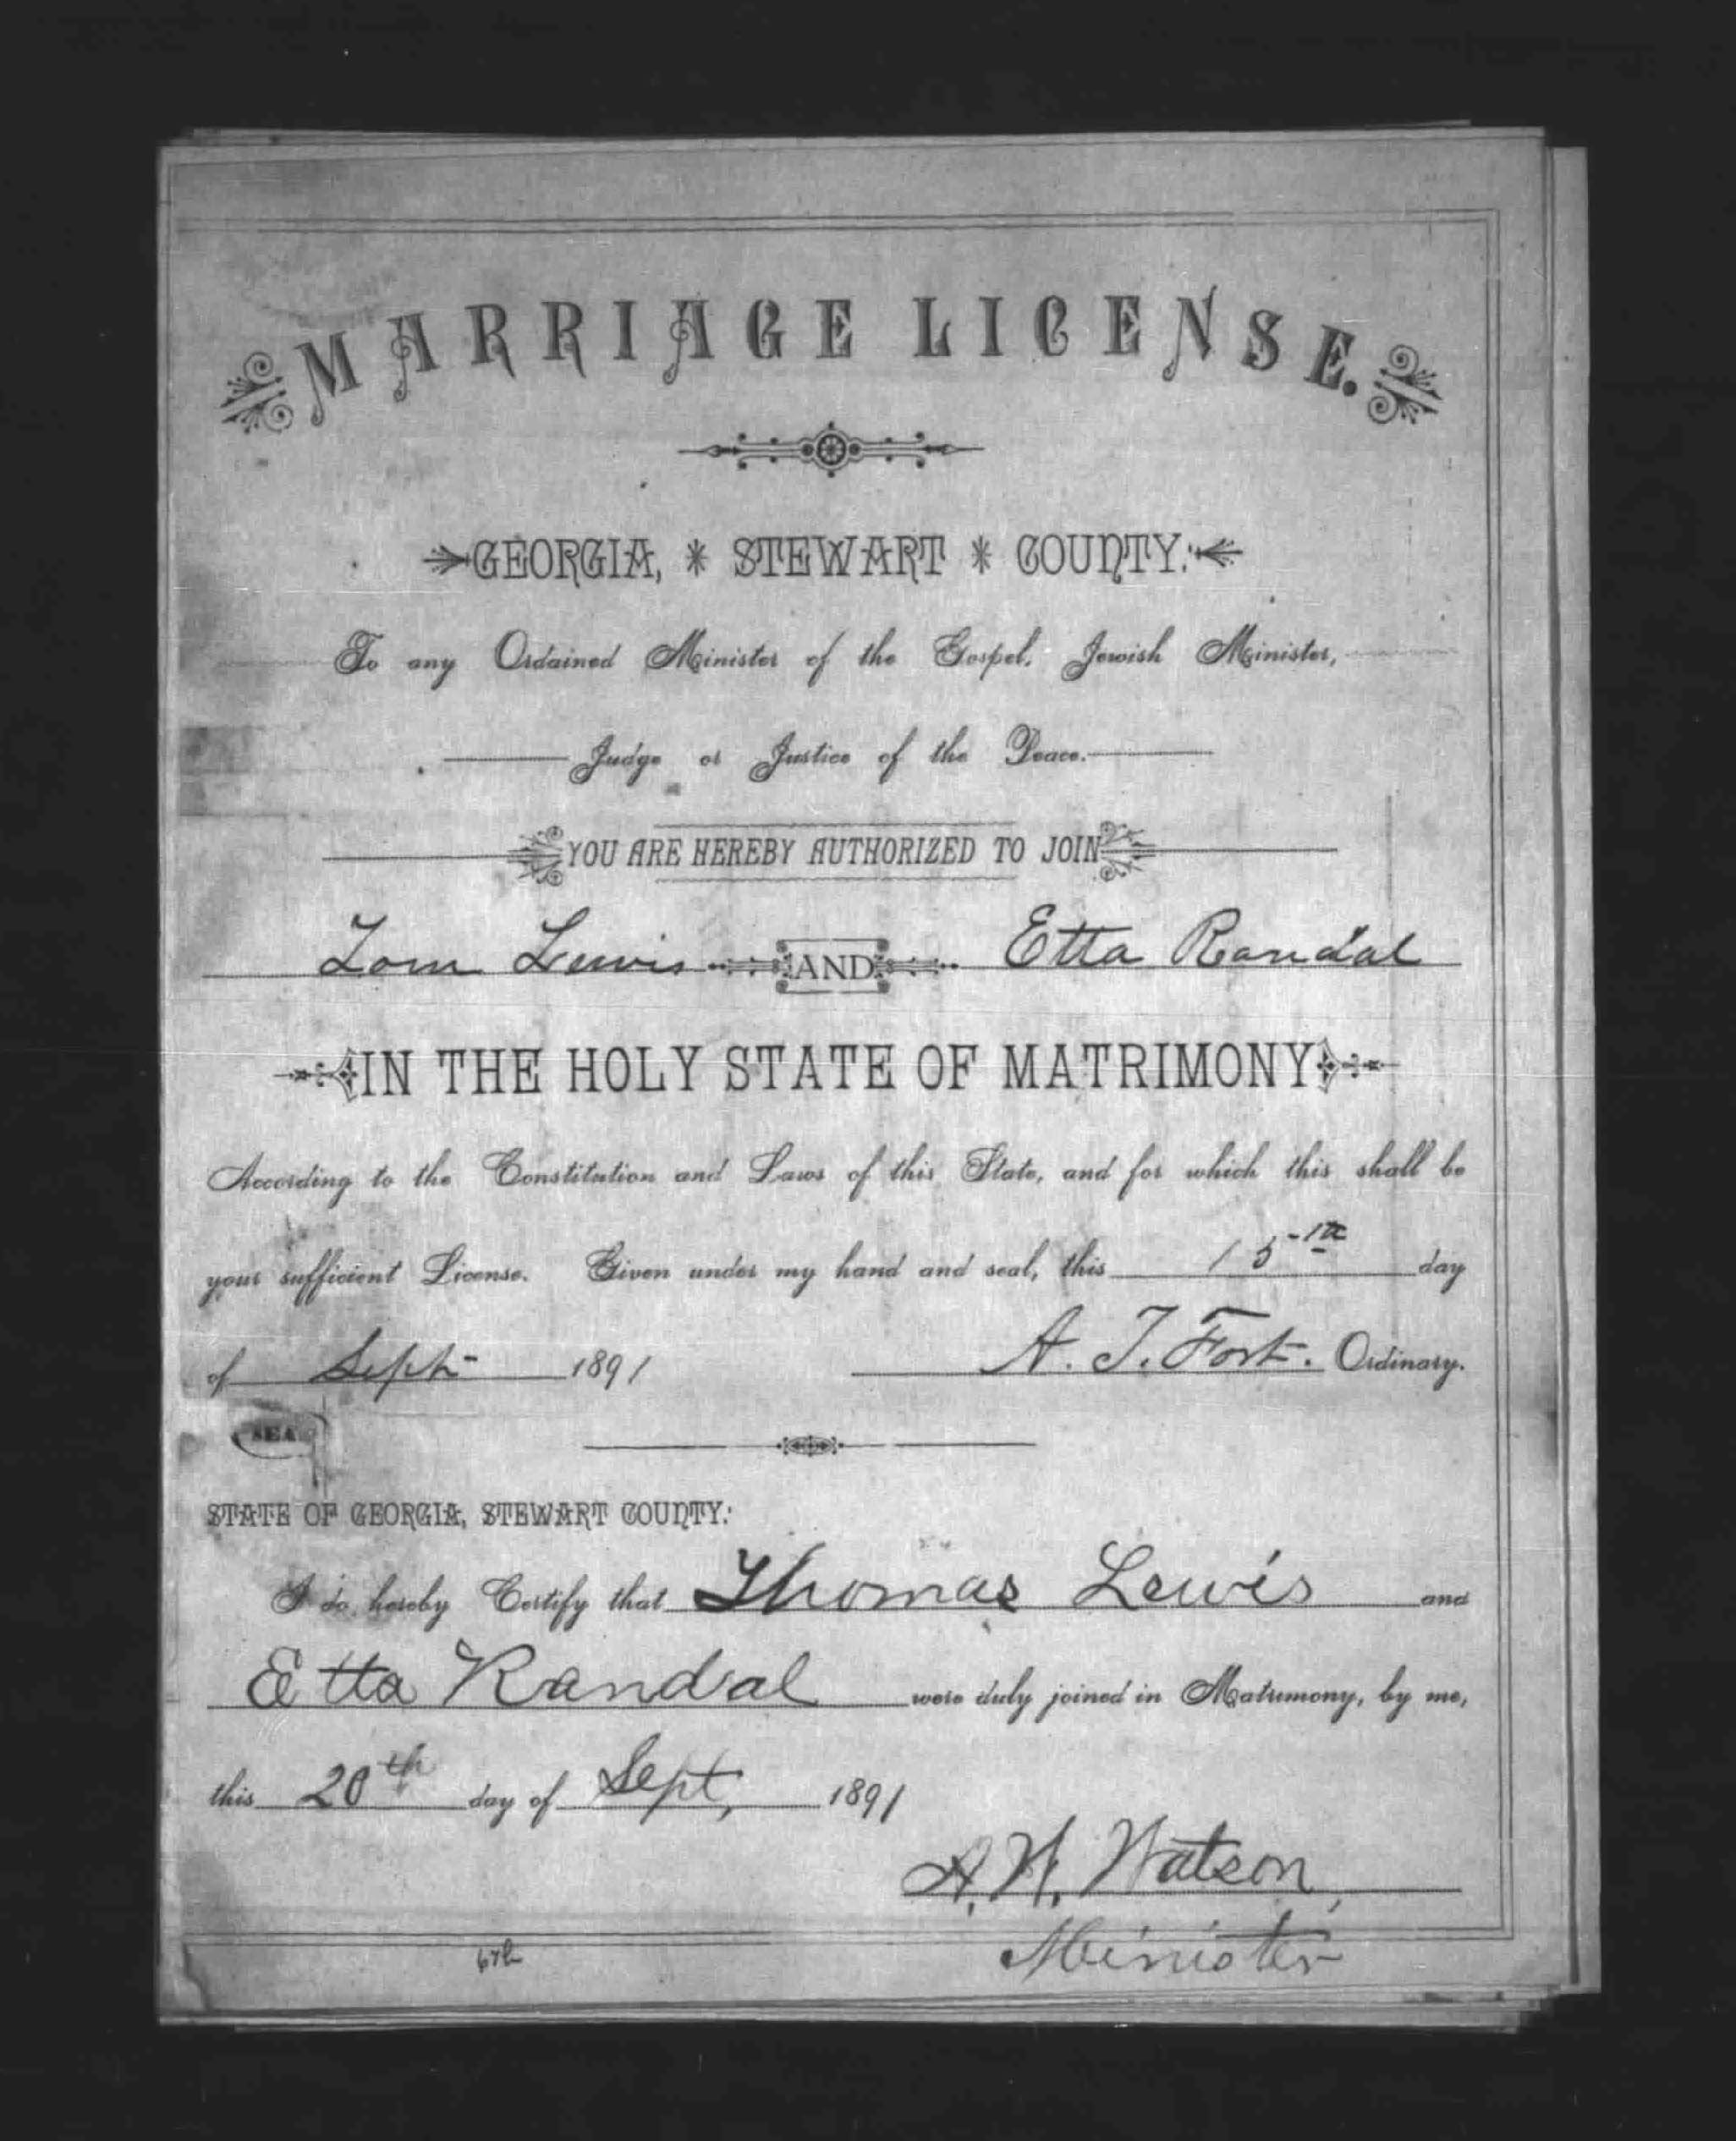 MARRIAGE LICENSE.
GEORGIA, * STEWART * COUNTY:
To any Ordained Minister of the Gospel, Jewish Minister,
Judge or Justice of the Peace.
YOU ARE HEREBY AUTHORIZED TO JOIN
Tom Lewis AND Etta Randal
IN THE HOLY STATE OF MATRIMONY
According to the Constitution and Laws of this State, and for which this shall be
your sufficient License. Given under my hand and seal, this 15th day
of Sept 1891 A. T. Fort. Ordinary.
SEA
STATE OF GEORGIA, STEWART COUNTY:
I do hereby Certify that Thomas Lewis and
Etta Randal were duly joined in Matrimony, by me,
this 20th day of Sept, 1891
A. W. Watson,
Minister